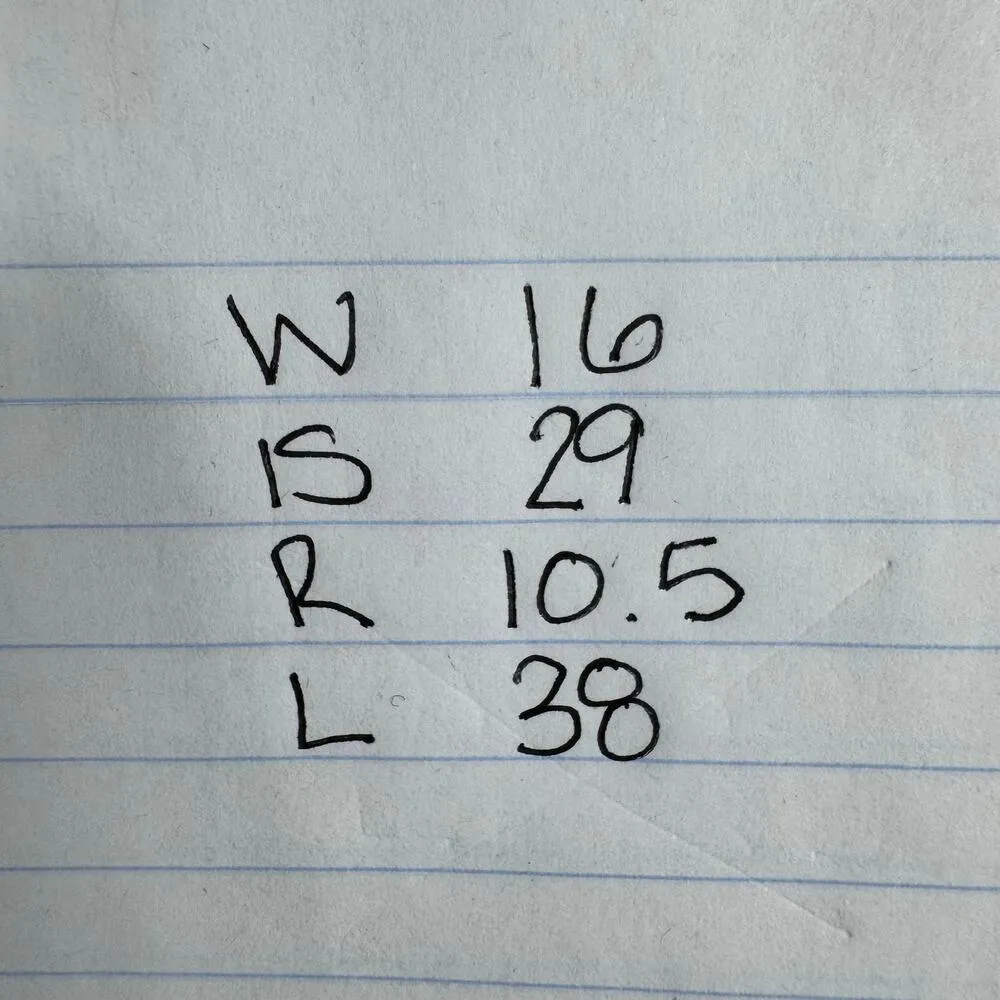 W 16
IS 29
R 10.5
L 38